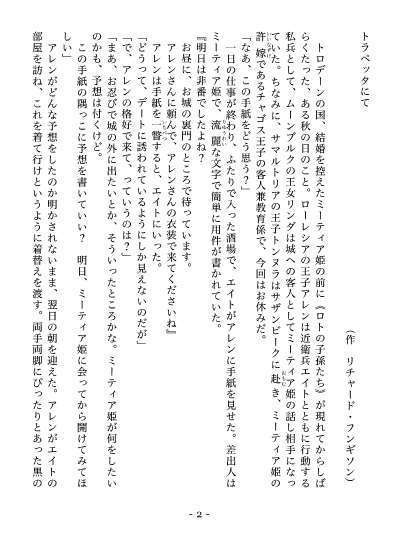 トラペッタにて
(作　リチャード・フンギソン)
　トロデーンの国、結婚を控えたミーティア姫の前に《ロトの子孫たち》が現れてからしば
らくたった、ある秋の日のこと。ローレシアの王子アレンは近衛兵エイトとともに行動する
私兵として、ムーンブルクの王女リンダは城への客人としてミーティア姫の話し相手になっ
ていた。ちなみに、サマルトリアの王子トンヌラはサザンビークに赴き、ミーティア姫の
許嫁であるチャゴス王子の客人兼教育係で、今回はお休みだ。
「なあ、この手紙をどう思う？」
　一日の仕事が終わり、ふたりで入った酒場で、エイトがアレンに手紙を見せた。差出人は
ミーティア姫で、流麗な文字で簡単に用件が書かれていた。
『明日は非番でしたよね？
　お昼に、お城の裏門のところで待っています。
　アレンさんに頼んで、アレンさんの衣装で来てくださいね』
　アレンは手紙を一瞥すると、エイトにいった。
「どうって、デートに誘われているようにしか見えないのだが」
「で、アレンの格好で来て、っていうのは？」
「まあ、お忍びで城の外に出たいとか、そういったところかな。ミーティア姫が何をしたい
のかも、予想は付くけど。
　この手紙の隅っこに予想を書いていい？　明日、ミーティア姫に会ってから開けてみてほ
しい」
　アレンがどんな予想をしたのか明かされないまま、翌日の朝を迎えた。アレンがエイトの
部屋を訪ね、これを着て行けというように着替えを渡す。両手両脚にぴったりとあった黒の
- 2 -